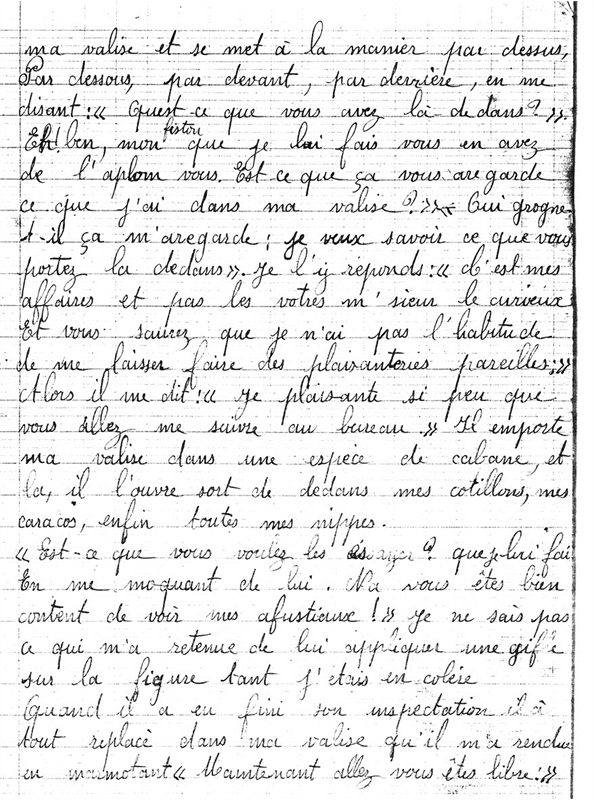 ma valise et se met à la manier par dessus,
Par dessous, par devant, par derrière, en me
disant : « Quest-ce que vous avez là dedans ? »
Eh ! ben, mon fiston que je lui fais vous en avez
de l'aplom vous. Est ce que ça vous aregarde
ce que j'ai dans ma valise ? » « Oui grogne
t-il ça m'aregarde ; je veux savoir ce que vous
portez la dedans ». Je l'ij réponds : « C'est mes
affaires et pas les votres m'sieur le curieux
Et vous saurez que je n'ai pas l'habitude
de me laisser faire des plaisanteries pareilles ; »
Alors il me dit : « Je plaisante si peu que
vous allez me suivre au bureau » Il emporte
ma valise dans une espèce de cabane, et
la, il l'ouvre sort de dedans mes cotillons, mes
caracos, enfin toutes mes nippes.
« Est-ce que vous voulez les essayer ? que je lui fai
En me moquant de lui. Na vous êtes bien
content de voir mes afustiaux ! » Je ne sais pas
ce qui m'a retenue de lui appliquer une gifle
sur la figure tant j'etais en colère
Quand il a eu fini son inspectation il à
tout replacè dans ma valise qu'il m'a rendue
en marmotant « Maintenant allez vous êtes libre : »